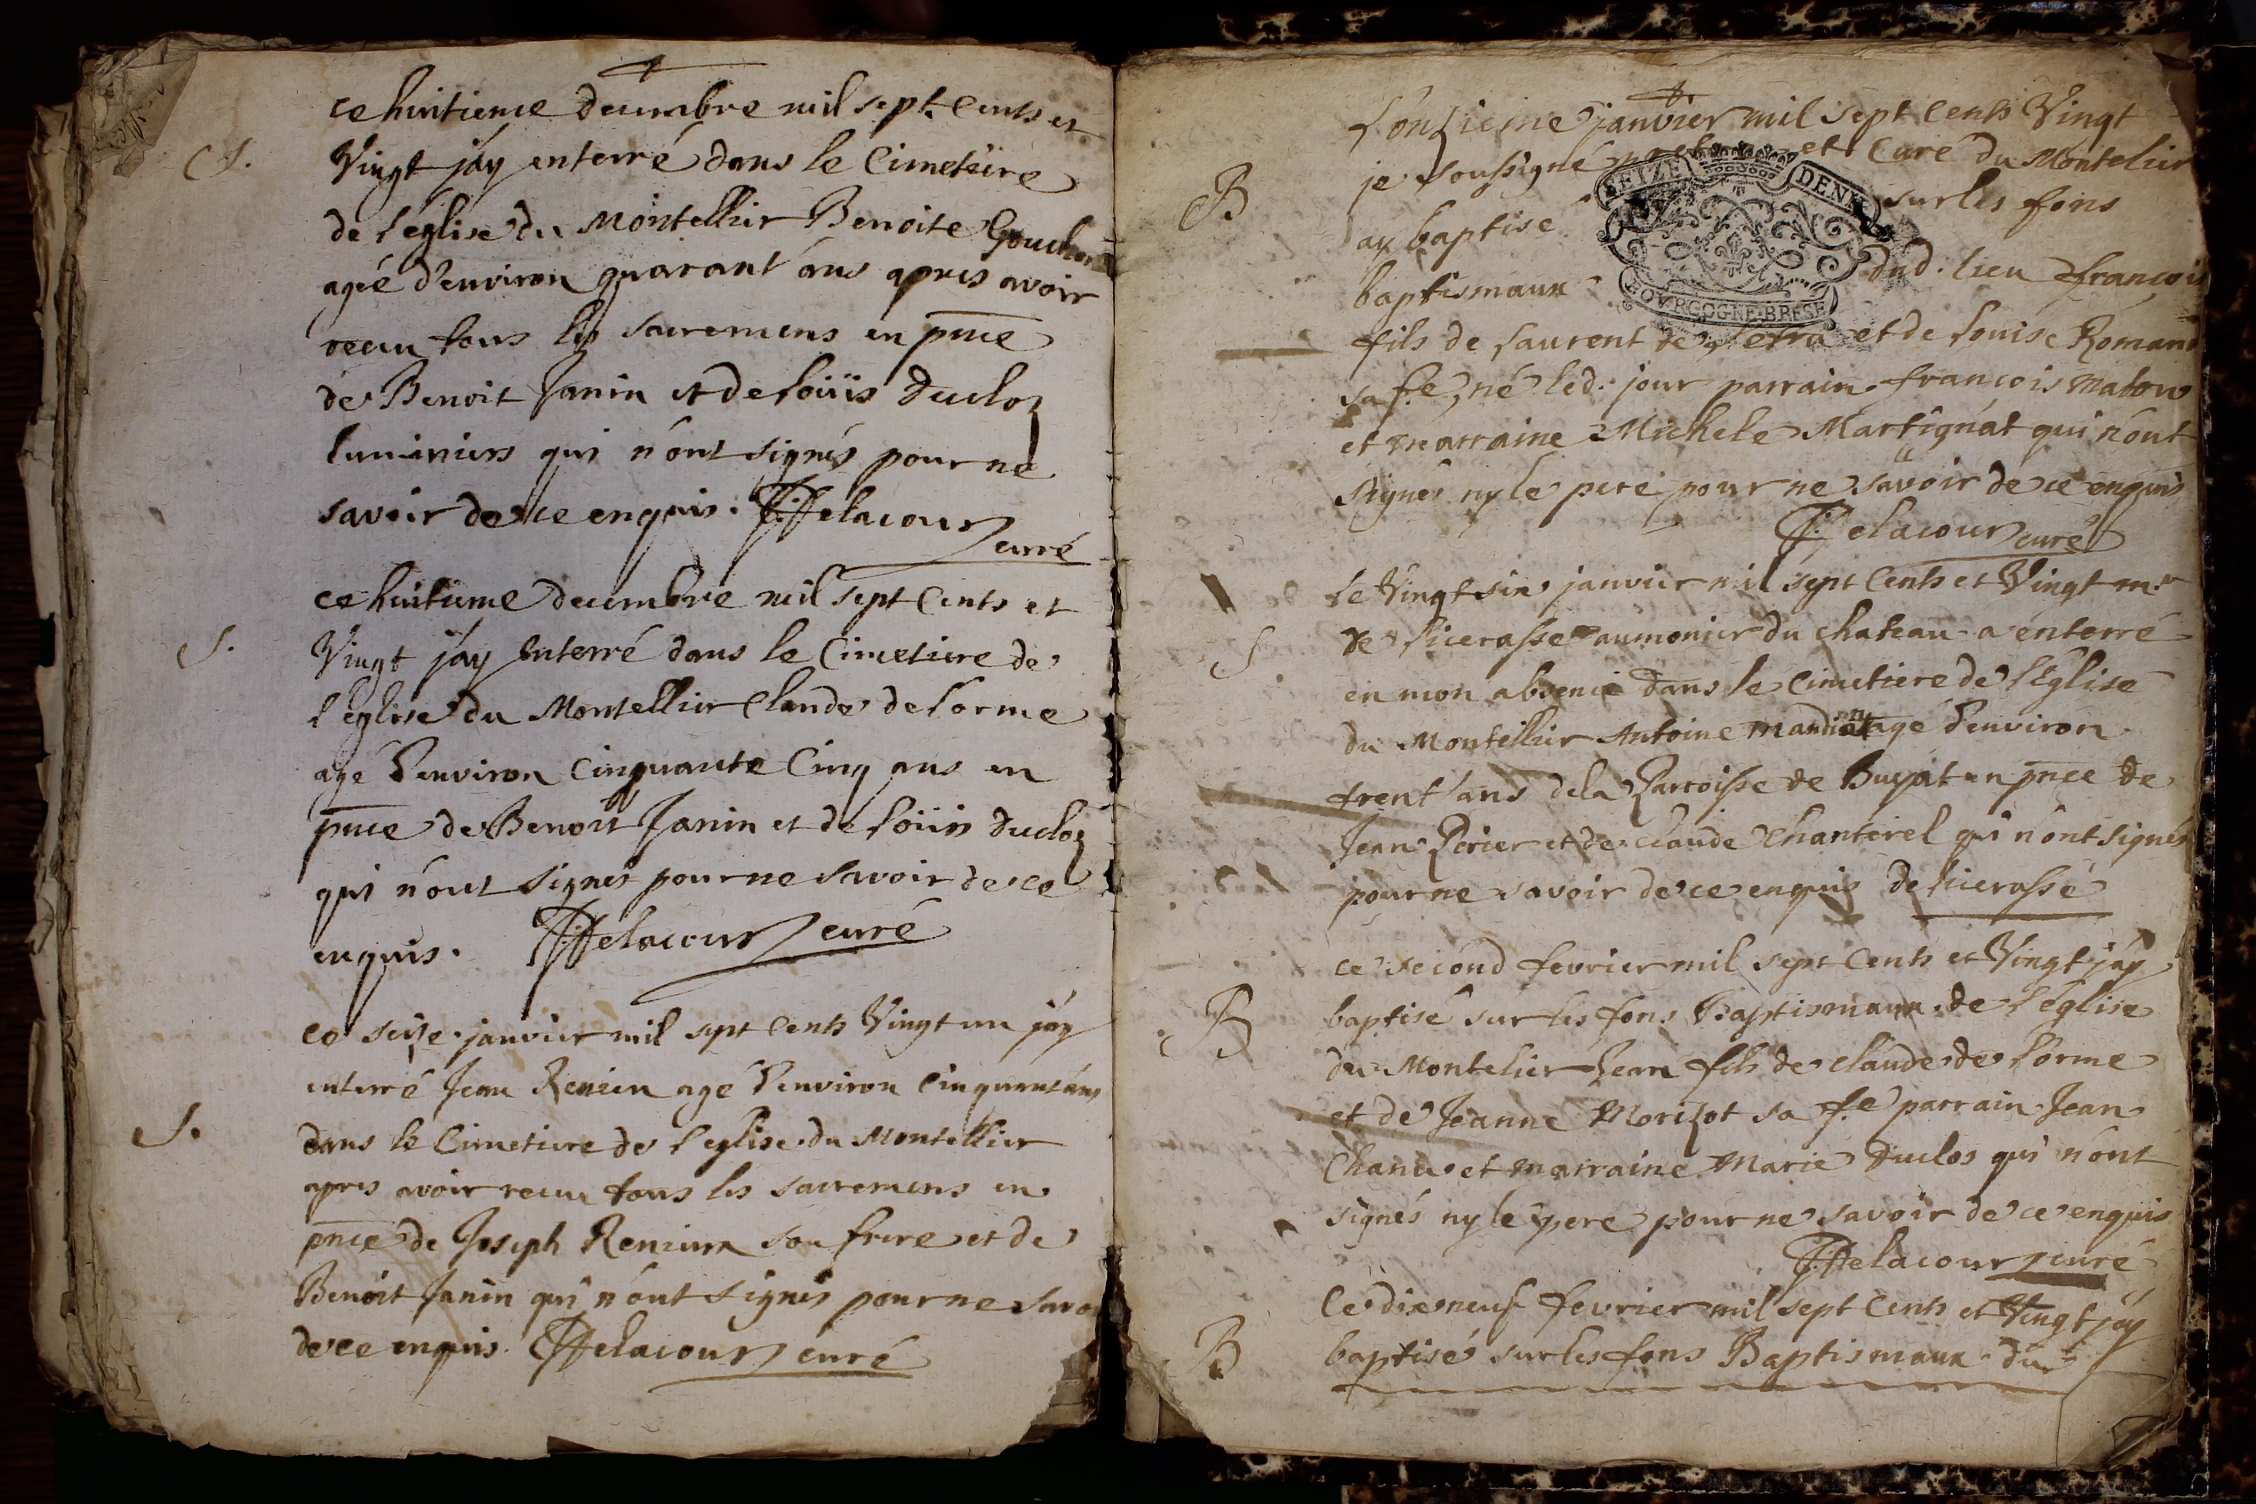 ce huitieme decembre mil sept Cents et
S. Vingt j'ay enterré dans le Cimetiere
de l'église du Montellier Benoite
agée d'environ quarant ans apres avoir
receu tous les sacremens en pnce
de Benoit Janin et de loüis Ducloz
luminiers qui n'ont signés pour ne
savoir de ce enquis. Delacour
curé
ce huitieme decembre mil sept Cents et
S. Vingt j'ay enterré dans le Cimetiere de
l'eglise du Montellier Claude de lorme
agé d'environ Cinquante Cinq ans en
pnce de Benoit Janin et de loüis Ducloz
qui n'ont signés pour ne savoir de ce
enquis. Delacour curé
ce seize janvier mil sept Cents Vingt un j'ay
enterré Jean Renien agé d'environ Cinquant ans
S. dans le Cimetiere de l'eglise du Montellier
apres avoir receu tous les sacremens en
pnce de Joseph son frere et de
Benoit Janin qui n'ont signés pour ne savoi
de ce enquis. Delacour curé
l'onzieme janvier mil sept Cents Vingt
B je soussigné et Curé du Montelier
ay baptisé sur les fons
baptismaux dud. lieu françois
SEIZE DENIE
BOVRGOGNE BRESE
fils de laurent de et de louise Romand
sa fe, né led. jour parrain françois
et marraine Michele Martignat qui n'ont
signés ny le pere pour ne savoir de ce enquis
Delacour curé
le Vingt six janvier mil sept Cents et Vingt mr
S. de licerasse aumonier du chateau a enterré
en mon absence dans le Cimetiere de l'Eglise
du Montellier Antoine agé d'environ
trent ans de la Parroisse de en pnce de
Jean Perier et de Claude Chanterel qui n'ont signés
pour ne savoir de ce enquis de licerasse
ce second fevrier mil sept Cents et Vingt j'ay
B baptisé sur les fons Baptismaux de l'église
du Montelier Jean fils de claude de lorme
et de Jeanne Morizot sa fe parrain Jean
et marraine Marie Duclos qui n'ont
signés ny le pere pour ne savoir de ce enquis
Delacour curé
Ce dixneuf fevrier mil sept Cents et Vingt j'ay
B baptisé sur les fons Baptismaux du